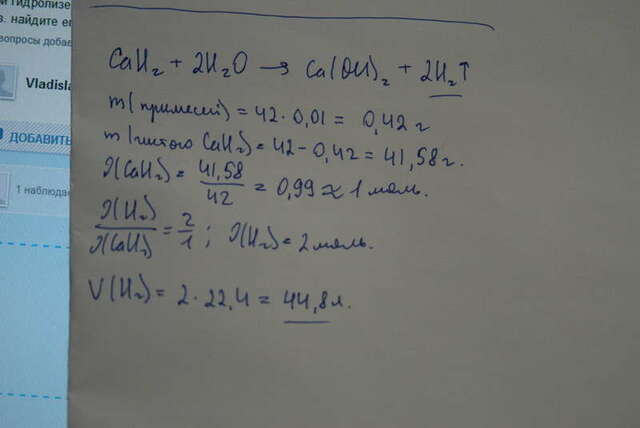 и гидролизе
в. найдите е
вопросы доба
Vladisla
ДОБАВИТЬ
1 наблюдае
CaH₂ + 2H₂O → Ca(OH)₂ + 2H₂↑
m(примесей) = 42 · 0,01 = 0,42 г
m(чистого CaH₂) = 42 - 0,42 = 41,58 г.
ν(CaH₂) = 41,58/42 = 0,99 ≈ 1 моль.
ν(H₂)/ν(CaH₂) = 2/1 ; ν(H₂) = 2 моль.
V(H₂) = 2 · 22,4 = 44,8 л.